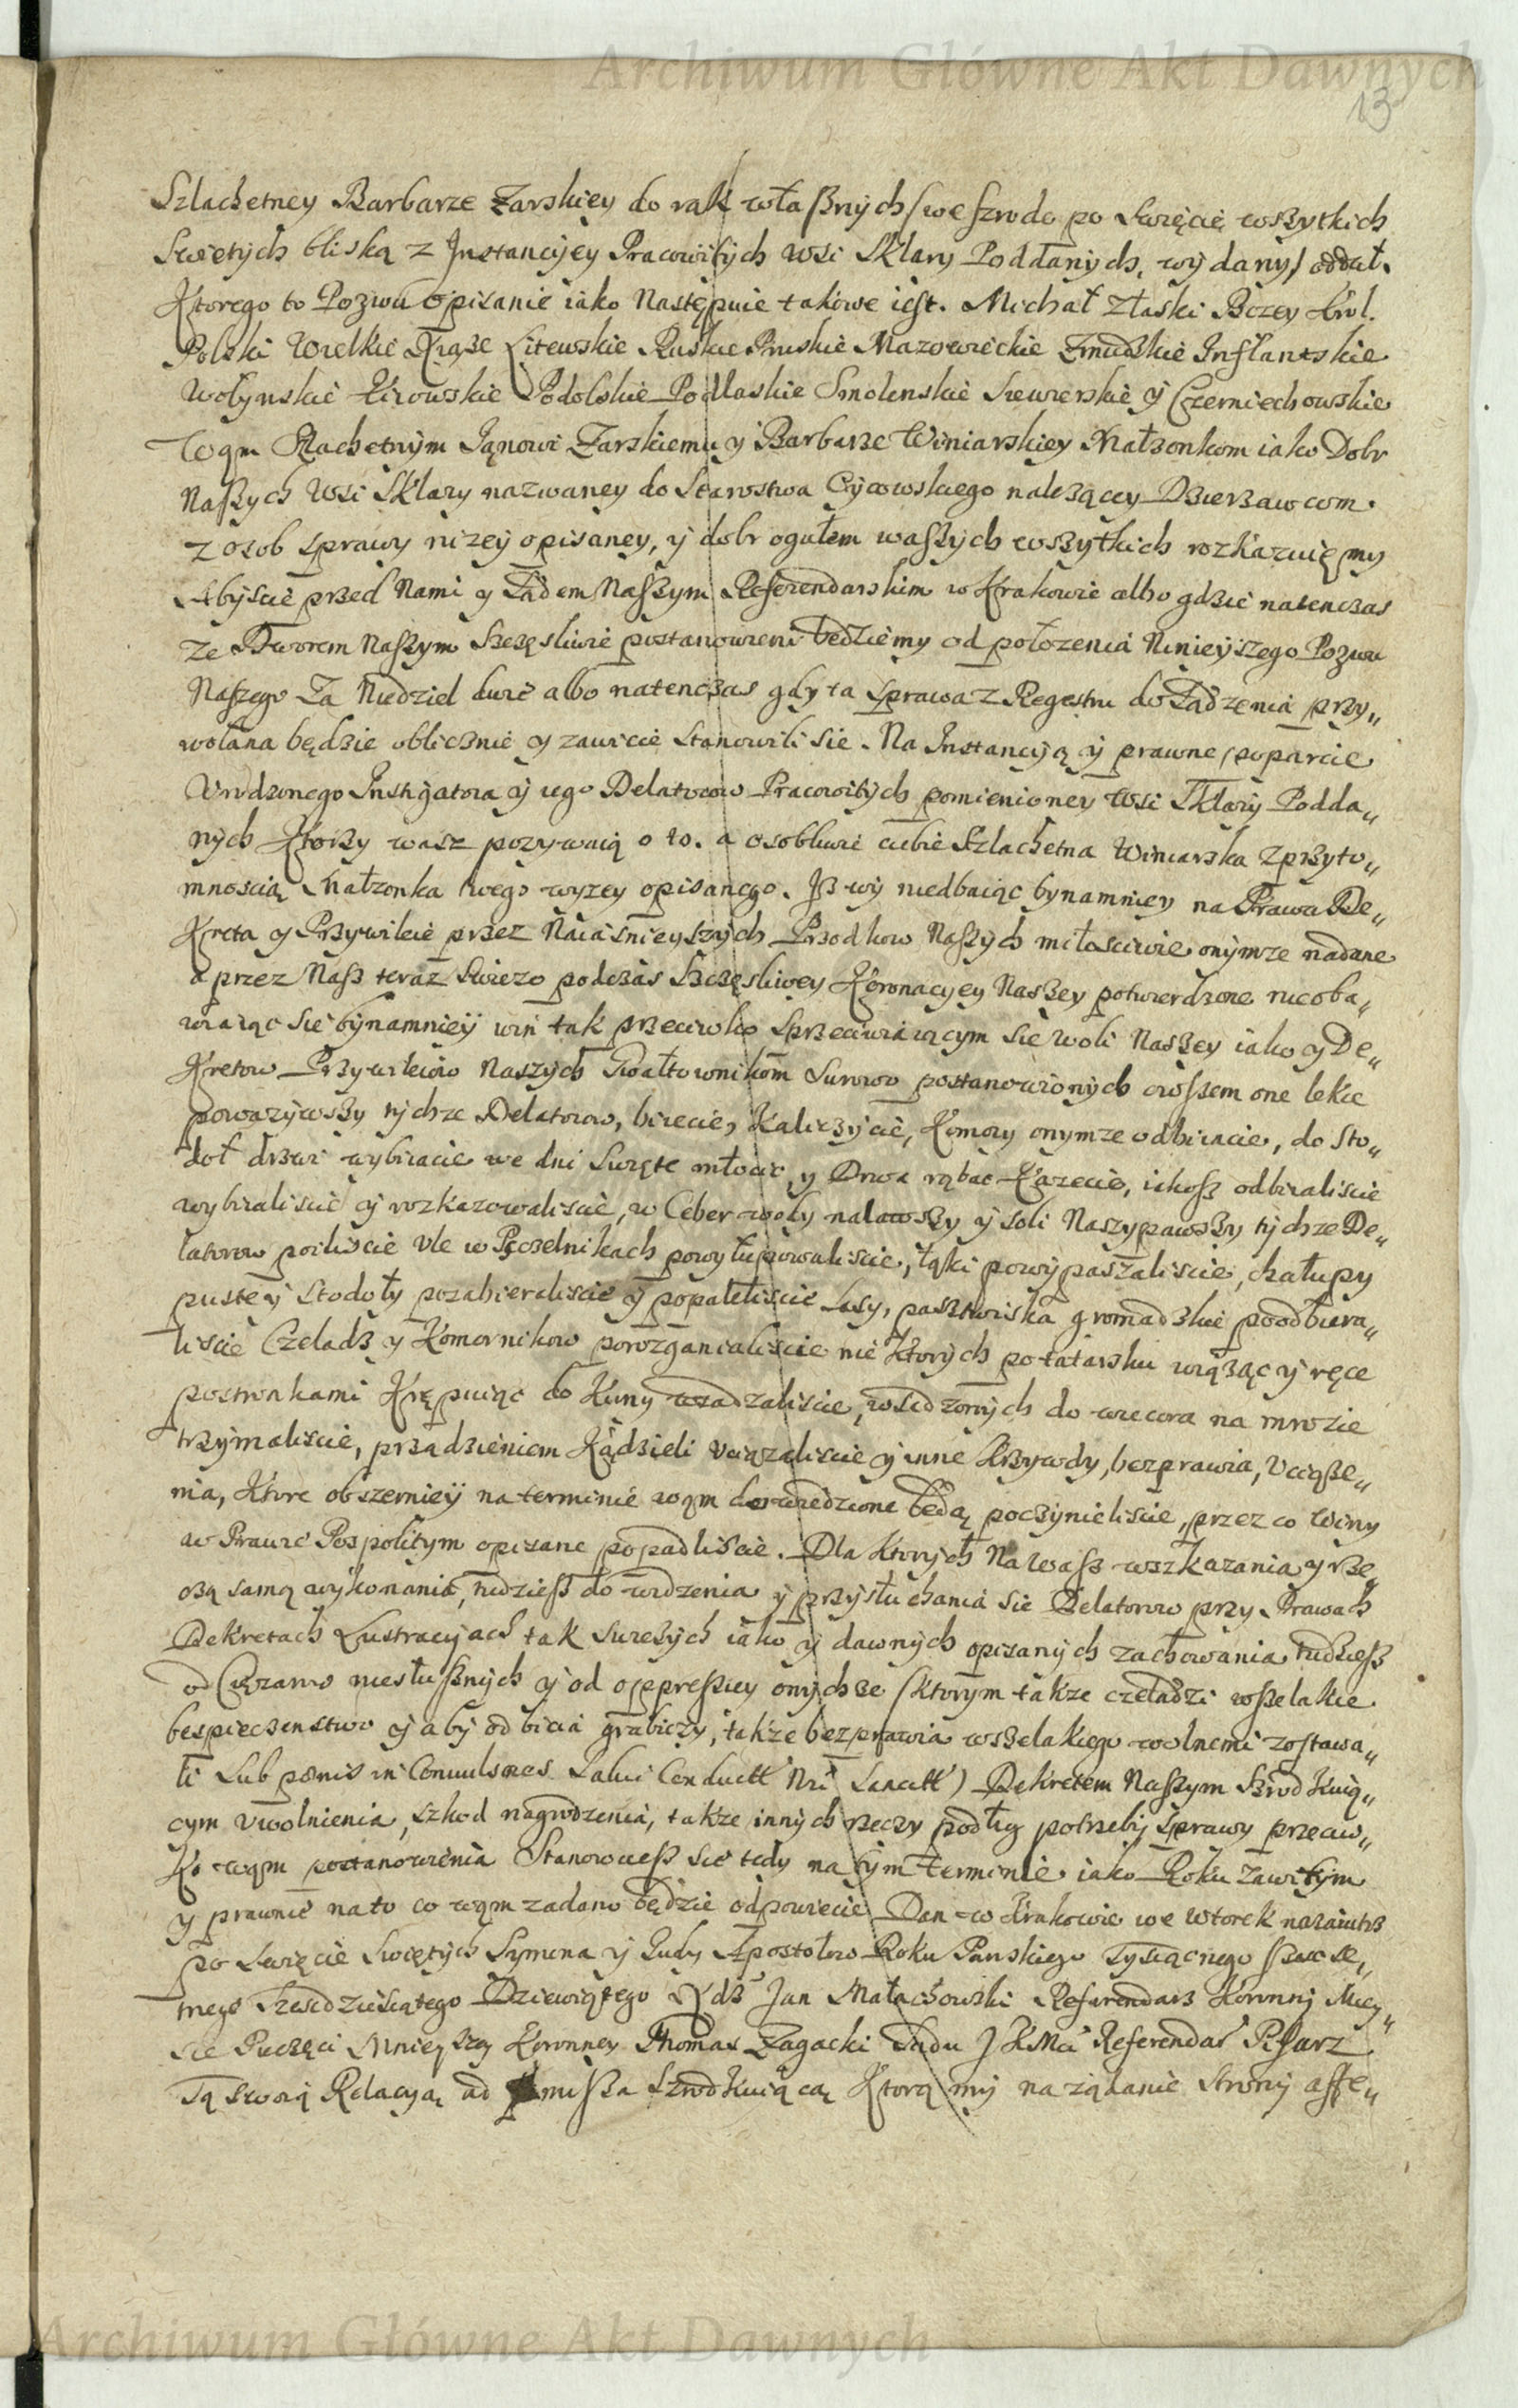 Archiwum Główne Akt Dawnych
13
Szlachetney Barbarze Zarskiey do rąk własznych (we szrodę po Swięcie wszytkich
Swiętych bliską z Instancyey Pracowitych wsi Sklary Poddanych, wydany) oddał.
Ktorego to Pozwu opisanie iako następuie takowe iest. Michał z łaski Bozey Krol.
Polski Wielkie Xiąze Litewskie Ruskie Pruskie Mazowieckie Zmudzkie Inflantskie
Wołynskie Kiiowskie Podolskie Podlaskie Smolenskie Siewierskie y Czerniechowskie
Wąm Szlachetnym Janowi Zarskiemu y Barbarze Winiarskiey Małzonkom iako Dobr
Naszych Wsi Sklary nazwaney do Starostwa Oycowskiego nalezącey Dzierzawcom.
z osob sprawy nizey opisaney, y dobr ogułem waszych wszytkich rozkazuięmy
Abyscie przed Nami y Sądem Naszym Referendarskim w Krakowie albo gdzie natenczas
ze Dworem Naszym Szczęsliwie postanowieni będziemy od połozenia Ninieyszego Pozwu
Naszego Za Niedziel dwie albo natenczas gdy ta sprawa z Regestru do Sądzenia przy„
wołana będzie oblicznie y zawicie Stanowili sie. Na Instancyą y prawne poparcie
Vrodzonego Instygatora y iego Delatorow Pracowitych pomienioney Wsi Sklary Podda„
nych Ktorzy wasz pozywaią o to. a osobliwie ciebie Szlachetna Winiarska z przyto„
mnoscią Małzonka twego wyzey opisanego. Jz wy niedbaiąc bynamniey na Prawa De„
kreta y Przywileie przez Naiasnieyszych Przodkow Naszych miłosciwie onymze nadane
a przez Nasz teraz swiezo podczas Szczęsliwey Koronacyey Naszey potwierdzone nieoba„
wiaiąc sie bynamniey win tak przeciwko Sprzeciwiaiącym sie woli Naszey iako y De„
kretow Przywileiow Naszych Gwałtownikom surowo postanowionych owszem one lekce
powazywszy tychze Delatorow, biiecie, Kaliczycie, Komory onymze odbiiacie, do Sto„
doł drzwi wybiiacie we dni Swięte młocic y Drwa rąbac Kazecie, iakosz odbiialiscie
wybiialiscie y rozkazowaliscie, w Ceber wody nalawszy y soli Naszypawszy tychze De„
latorow poiliscie Vle w Pęczelnikach powyłupowaliscie, łąki powypaszaliscie, chałupy
puste y Stodoły pozabieraliscie y popaleliscie Lasy, pastwiska gromadzkie poodbiera„
liscie Czeladz y Komornikow porozganialiscie nie ktorych po tatarsku wiąząc y ręce
postronkami Krępuiąc do Kuny wsadzaliscie, wsadzonych do wieczora na mrozie
trzymaliscie, prządzieniem Kądzieli Vciązaliscie y inne Krzywdy, bezprawia, Vciąze„
nia, Ktore obszerniey na terminie wąm dowiedzione będą poczynieliscie, przez co Winy
w Prawie Pospolitym opisane popadliscie. Dla ktorych Na Wasz wszkazania y rze„
czą samą wykonania, tudziesz do widzenia y przysłuchania sie Delatorow przy Prawach
Dekretach Lustracyach tak swiezych iako y dawnych opisanych zachowania tudziesz
od Cięzarow niesłusznych y od oppressiey onychze (ktorym takze czeladzi wszelakie
bespieczenstwo y aby od bicia grabiezy, takze bezprawia wszelakiego wolnemi zostawa„
li Sub pœnis in Convulsores Salvi Conductt Nri Sancitt) Dekretem Naszym Szrodkuią„
cym vwolnienia, szkod nagrodzenia, takze innych rzeczy podług potrzeby Sprawy przeciw„
ko wąm postanowienia Stanowciesz sie tedy na tym terminie iako Roku zawitym
y prawnie na to co wąm zadano będzie odpowiecie Dan w Krakowie we Wtorek nazaiutrz
po Swięcie Swiętych Symona y Judy Apostołow Roku Panskiego Tysiącnego szescse„
tnego Szescdziesiątego Dziewiątego Xdz Jan Małachowski Referendarz Koronny Miey„
sce Pieczęci Mnieyszey Koronney Thomas Zagacki Sądu J K Mci Referendar Pisarz
Tą swoią Relacyą ad pmissa Szrodkuiącą Ktorą my na ządanie Strony affe„
Archiwum Główne Akt Dawnych